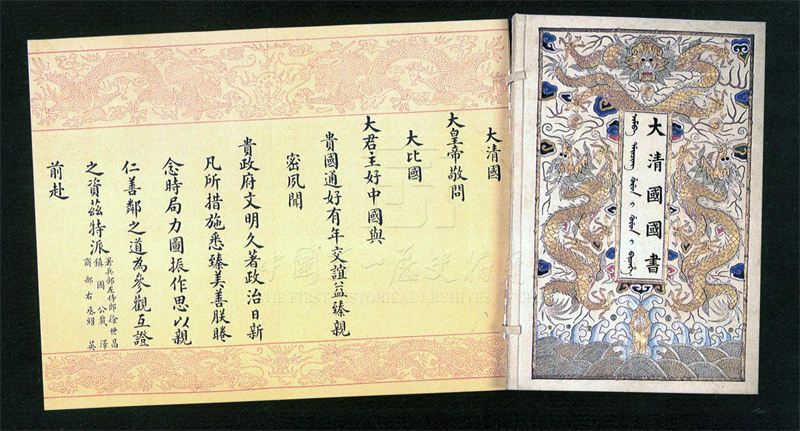 大清國國書
大清國
大皇帝敬問
大比國
大君主好中國與
貴國通好有年交誼益臻親
密夙聞
貴政府文明久著政治日新
凡所措施悉臻美善朕睠
念時局力圖振作思以親
仁善鄰之道為參觀互證
之資茲特派
署兵部左侍郎徐世昌
鎮國公載澤
商部右丞紹英
前赴